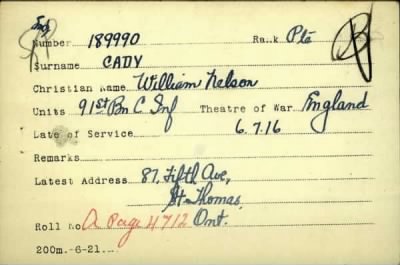 Number 189990 Rank Pte
Surname CADY
Christian Name William Nelson
Units 91st Bn C Inf Theatre of War England
Date of Service 6.7.16
Remarks
Latest Address 87, Fifth Ave,
St. Thomas,
Roll No. A Page 4712 Ont.
200m.-6-21.